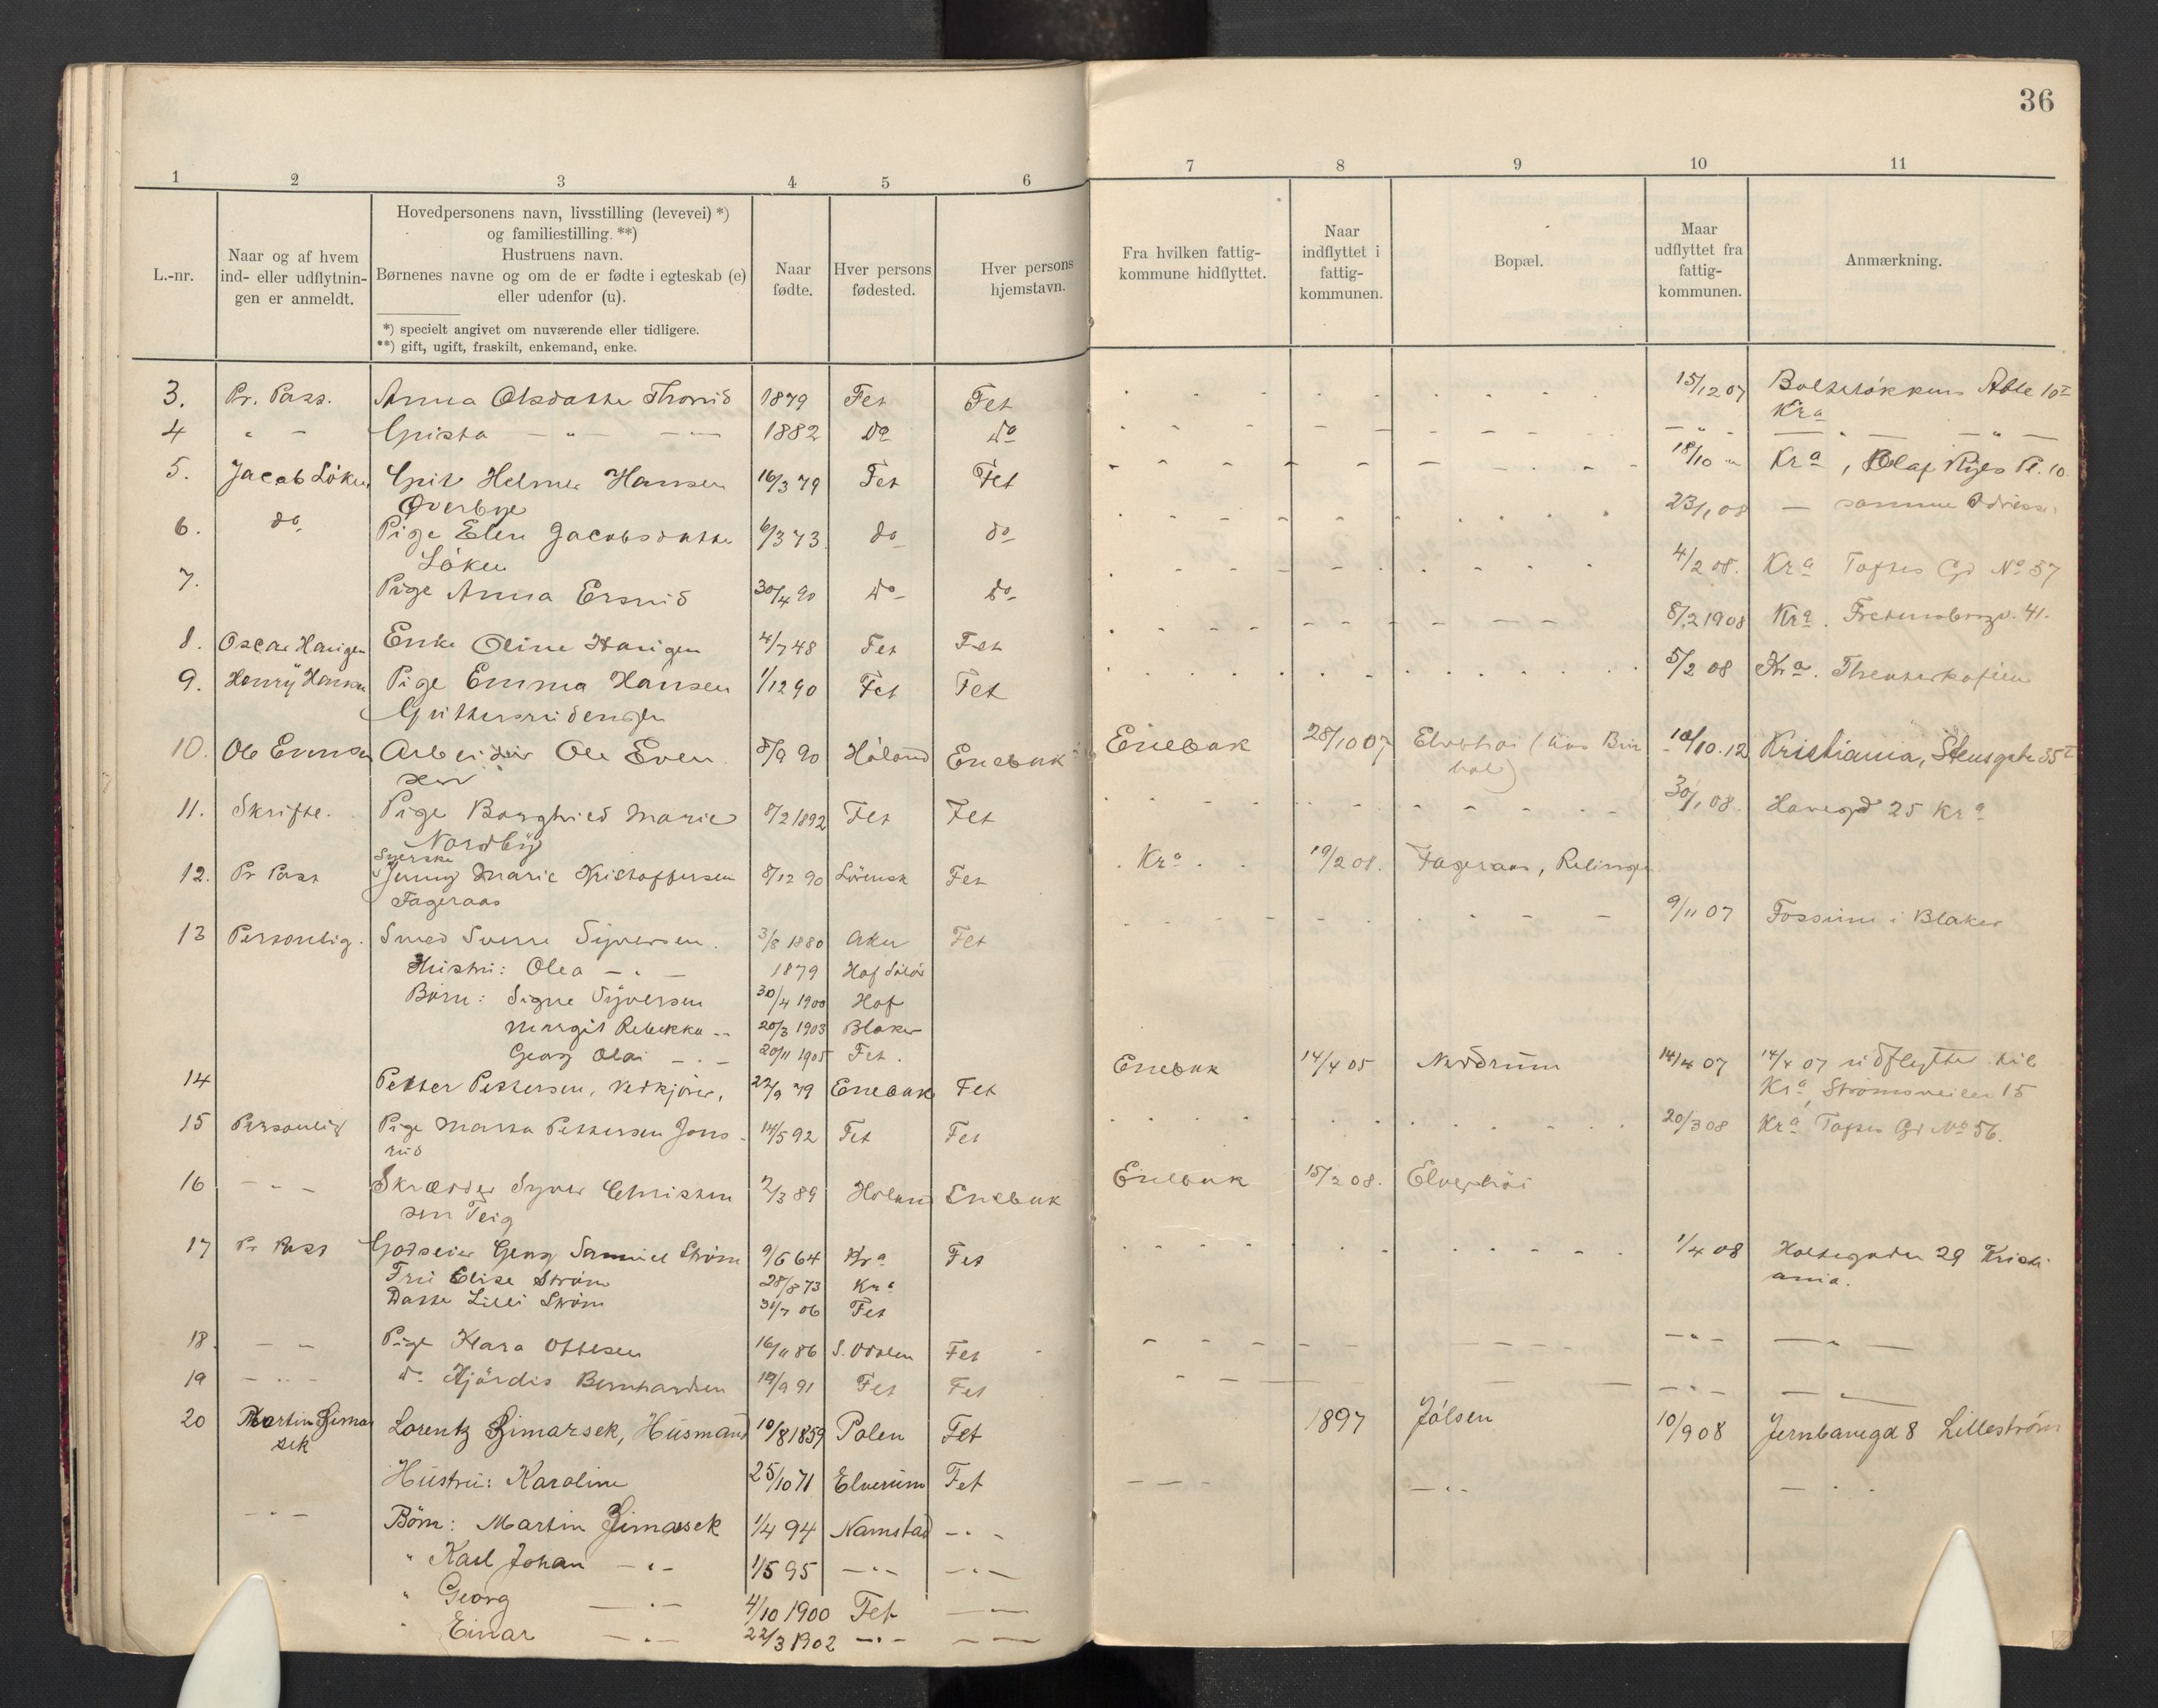 36
1 2 3 4 5 6 7 8 9 10 11
L.-nr.
Naar og af hvem
ind- eller udflytnin-
gen er anmeldt.
Hovedpersonens navn, livsstilling (levevei) *)
og familiestilling. **)
Hustruens navn.
Børnenes navne og om de er fødte i egteskab (e)
eller udenfor (u).
*) specielt angivet om nuværende eller tidligere.
**) gift, ugift, fraskilt, enkemand, enke.
Naar
fødte.
Hver persons
fødested.
Hver persons
hjemstavn.
Fra hvilken fattig-
kommune hidflyttet.
Naar
indflyttet i
fattig-
kommunen.
Bopæl.
Maar
udflyttet fra
fattig-
kommunen.
Anmærkning.
3. Pr. Pass. Anna Olsdatter 1879 Fet Fet 15/12 07
Kra
4 " - - " - 1882 Do Do - " -
5. Jacob Löken Helmer Hansen 16/3 79 Fet Fet 18/10 " Kra, Olaf Ryes Pl. 10.
Överbye
6. do. Pige Elen Jacobsdatter 6/3 73. do do 23/1 08 — samme Adresse
Löken
7. Pige Anna 30/4 90 Do Do 4/2 08. Kra Toftes Gd No 57
8. Oscar Harigen Enke Oline Harigen 4/7 48 Fet Fet 8/2 1908 Kra. 41.
9. Henry Hansen Pige Emma Hansen 1/12 90 Fet Fet 5/2 08 Kra. Theaterkafeen
10. Ole Evensen Arbeider Ole Even 8/9 90 Höland Enebak Enebak 28/10 07 Elverhoi (hos 10/10.12 Kristiania, Stensgate 35
sen
11. Skriftl. Pige Borghied Marie 8/2 1892 Fet Fet 30/1 08. Havegd 25 Kra
Nordby
Syerske
12. Pr Pass Jenny Marie Kristoffersen 8/12 90 Lörensk Fet Kra 19/2 08. Fageraas, Relingen
Fageraas
13 Personlig. Smed Sverre Syversen. 3/8 1880 Aker Fet 9/11 07 Fossum i Blaker
Hustru: Olea - " - 1879 Hof Solör
Börn: Signe Syversen 30/4 1900 Hof
Margit Rebekka - - 20/3 1903 Blaker
Georg Olai - " - 20/11 1905 Fet.
14 Petter Pettersen, Vedkjörer, 22/9 79 Enebak Fet Enebak 14/4 05 Nordrum 14/4 07 14/4 07 udflyttet til
Kra, Strömsveien 15
15 Personlig Pige Marta Pettersen Jons- 14/5 92 Fet Fet 20/3 08 Kra Toftes Gd No 56.
rud
16 - " - Skrædder Syver Christian 2/3 89 Höland Enebak Enebak 15/2 08. Elverhöi
sen Teig
17 Pr Pass Godseier Georg Samuel Ström 9/6 64 Kra Fet 1/4 08 Holtegaden 29 Kristi
ania.
Fru Elise Ström 28/8 73 Kra
Datter Lilli Ström 31/7 06 Fet
18. - " Pige Klara Ottesen 16/11 86 S. Odalen Fet - " - — " —
19 - " - do Hjördis Bernhardsen 19/9 91 Fet Fet - " - — " —
20 Martin Zimar
sek
Lorentz Zimarsek, Husmand 10/8 1859 Polen Fet 1897 Jölsen 10/9 08 Jernbanegd 8 Lilleström
Hustru: Karoline 25/10 71 Elverum Fet - - - - " - — " "
- " - Börn: Martin Zimarsek 1/4 94 Namstad - " -
" Karl Johan - " - 1/5 95 - " - - " -
" Georg - " - 4/10 1900 Fet - " -
" Einar - " - 22/3 1902 - " - - " -